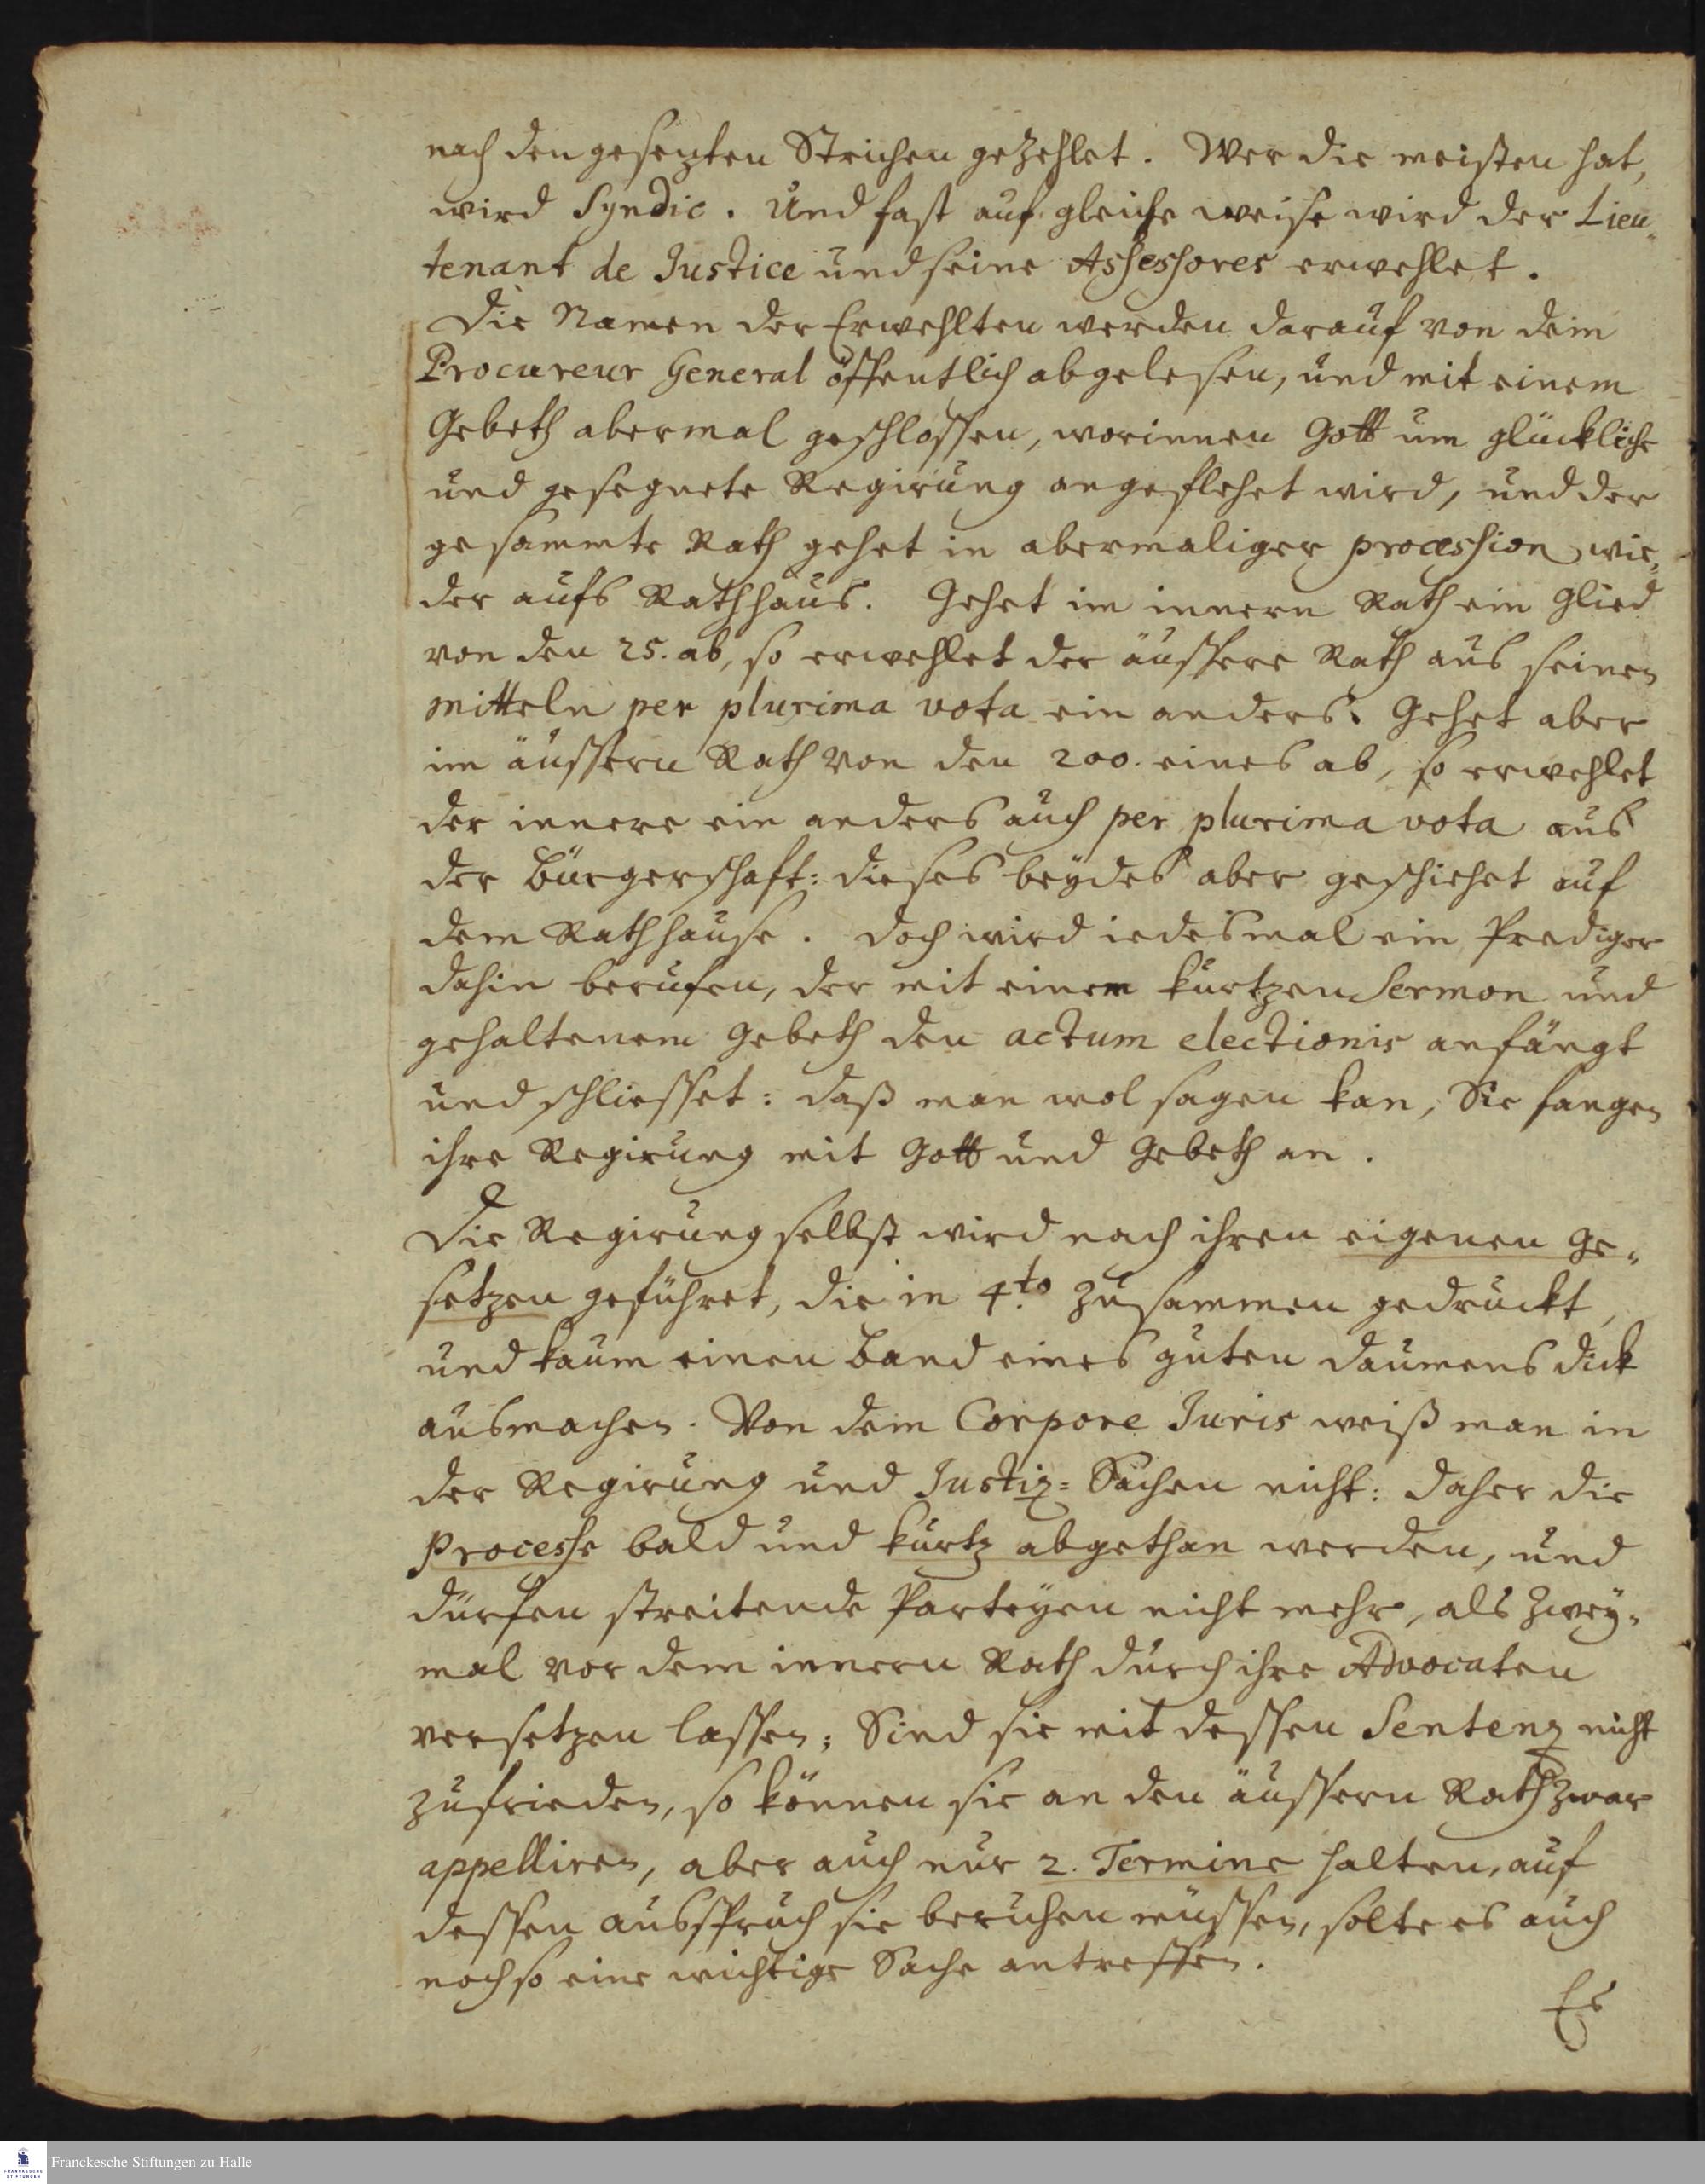 nach den gesezten Strichen gezehlet. Wer die meisten hat,
wird Syndic. Und fast auf gleiche weise wird der Lieu-
tenant de Justice und seine Assessores erwehlet.
Die Namen der Erwehlten werden darauf von dem
Procureur General öffentlich abgelesen, und mit einem
Gebeth abermal geschlossen, worinnen Gott um glückliche
und gesegnete Regirung angeflehet wird, und der
gesammte Rath gehet in abermaliger procession wie-
der aufs Rathhaus. Gehet im innern Rath ein Glied
von den 25. ab, so erwehlet der äussere Rath aus seinen
mitteln per plurima vota ein anders. Gehet aber
im äussern Rath von den 200. eines ab, so erwehlet
der innere ein anders auch per plurima vota aus
der Bürgerschaft: dieses beydes aber geschiehet auf
dem Rathhause. Doch wird iedesmal ein Prediger
dahin berufen, der mit einem kurtzen Sermon und
gehaltenem Gebeth den actum electionis anfängt
und schliesset: daß man wol sagen kan, Sie fangen
ihre Regirung mit Gott und Gebeth an.
Die Regirung selbst wird nach ihren eigenen Ge-
setzen geführet, die in 4.to zusammen gedruckt,
und kaum einen Band eines guten Daumens dick
ausmachen. Von dem Corpore Juris weiß man in
der Regirung und Justiz=Sachen nicht: daher die
Processe bald und kurtz abgethan werden, und
dürfen streitende Parteyen nicht mehr, als zwey-
mal vor dem innern Rath durch ihre Advocaten
versetzen lassen; Sind sie mit dessen Sentenz nicht
zufrieden, so können sie an den äussern Rath zwar
appelliren, aber auch nur 2. Termine halten, auf
dessen ausspruch sie beruhen müssen, solte es auch
noch so eine wichtige Sache antreffen.
Es
Franckesche Stiftungen zu Halle